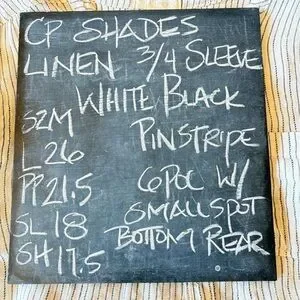 CP SHADES
LINEN 3/4 SLEEVE
WHITE/BLACK
SZM PINSTRIPE
L 26
PP 21.5 6POC W/
SL 18 SMALL SPOT
SH 17.5 BOTTOM REAR